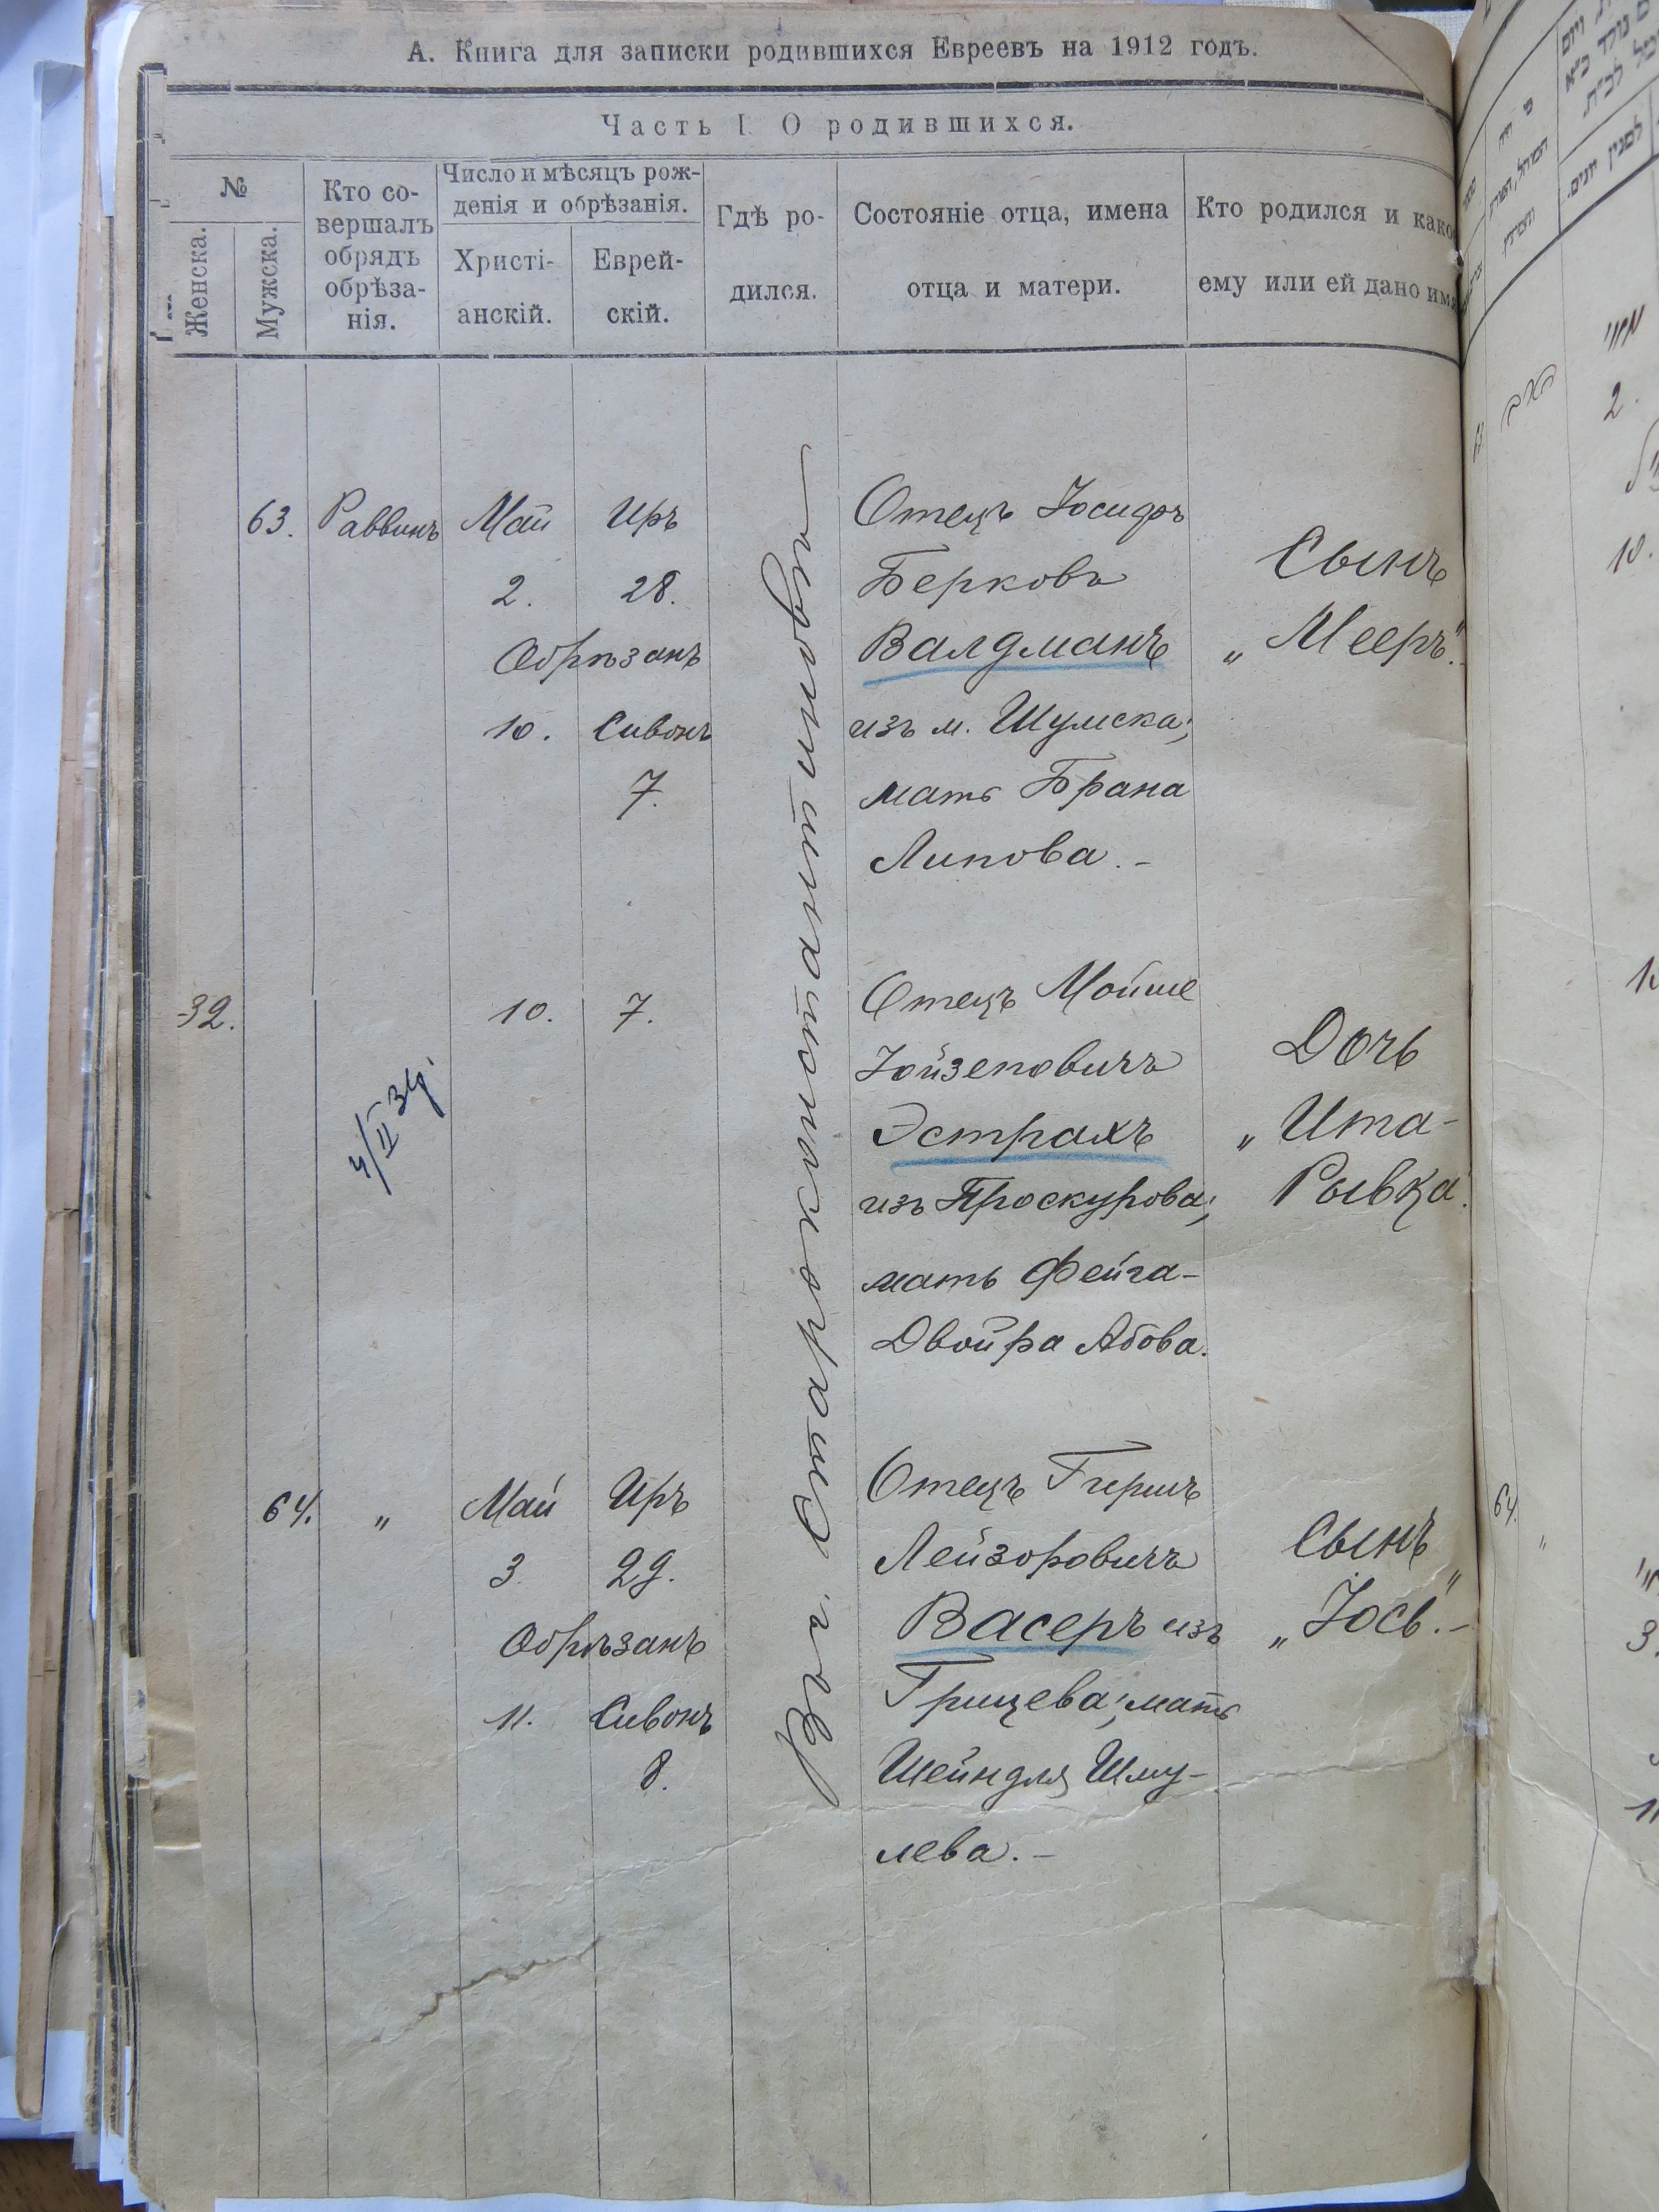 А. Книга для записки родившихся Евреевъ на 1912 годъ.
Часть I О родившихся.
№
Женска.
Мужска.
Кто со-
вершалъ
обрядъ
обрѣза-
нія.
Число и мѣсяцъ рож-
денія и обрѣзанія.
Христі-
анскій.
Еврей-
скій.
Гдѣ ро-
дился.
Состояніе отца, имена
отца и матери.
Кто родился и како
ему или ей дано имя
63. Раввинъ
Май Иръ
2. 28.
Обрѣзанъ
10. Сивонъ
7.
Отецъ Іосифъ
Берковъ
Валдманъ
изъ м. Шумска;
мать Брана
Липова. -
Сынъ
„Мееръ".
32.
10. 7.
4/II 34.
Отецъ Мойше
Іойзеповичъ
Эстрахъ
изъ Проскурова;
мать Фейга-
Двойра Абова.
Дочь
„Ита-
Рывка.
64. „
Май Иръ
3. 29.
Обрѣзанъ
11. Сивонъ
8.
Отецъ Гершъ
Лейзоровичъ
Васеръ изъ
Грицева; мать
Шейндля Шму-
лева. -
Сынъ
„Іось". -
Въ г. Староконстантиновѣ
64.